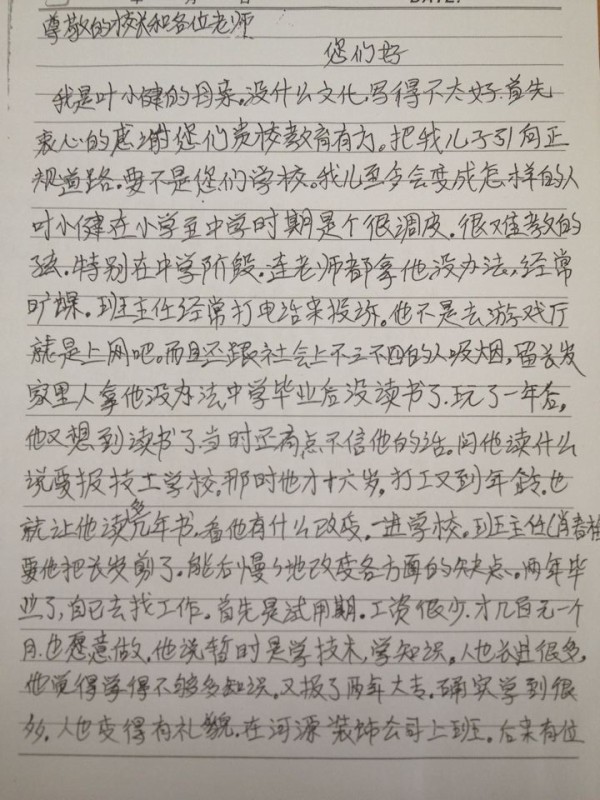 尊敬的校长和各位老师
您们好
我是叶小健的母亲。没什么文化,写得不太好.首先
衷心的感谢您们贵校教育有方。把我儿子引向正
规道路。要不是您们学校。我儿子会变成怎样的人
叶小健在小学至中学时期是个很调皮。很难教的
孩.特别在中学阶段.连老师都拿他没办法,经常
旷课。班主任经常打电话来投诉。他不是去游戏厅
就是上网吧。而且还跟社会上不三不四的人吸烟,留长发
家里人拿他没办法,中学毕业后没读书了.玩了一年后,
他又想到读书了.当时还有点不信他的话。问他读什么
说要报技工学校。那时他才十六岁,打工又到年龄.也
就让他读多几年书,看他有什么改变。一进学校。班主任(肖春桂
要他把长发剪了。能后慢々地改变各方面的缺点。两年毕
业了,自已去找工作。首先是试用期。工资很少.才几百元一个
月.也愿意做,他说暂时是学技术,学知识,人也长进很多,
他觉得学得不够多知识。又报了两年大专。确实学到很
多.人也变得有礼貌.在河源装饰公司上班。后来有位